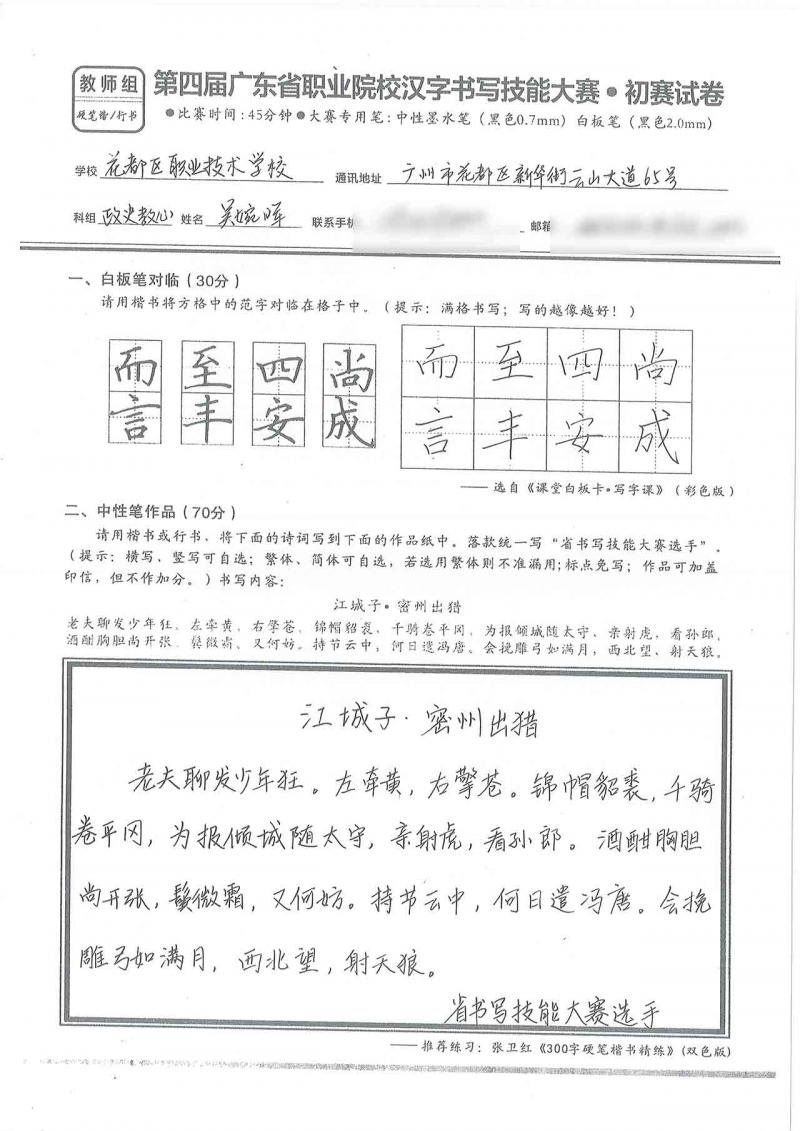 教师组
硬笔楷/行书
第四届广东省职业院校汉字书写技能大赛•初赛试卷
●比赛时间:45分钟●大赛专用笔:中性墨水笔(黑色0.7mm)白板笔(黑色2.0mm)
学校 花都区职业技术学校 通讯地址 广州市花都区新华街云山大道65号
科组 政史教心 姓名 吴婉晖 联系手机 邮箱
一、白板笔对临(30分)
请用楷书将方格中的范字对临在格子中。(提示:满格书写;写的越像越好!)
而 至 四 尚 而 至 四 尚
言 丰 安 成 言 丰 安 成
——选自《课堂白板卡•写字课》(彩色版)
二、中性笔作品(70分)
请用楷书或行书,将下面的诗词写到下面的作品纸中。落款统一写“省书写技能大赛选手”。
(提示:横写、竖写可自选;繁体、简体可自选,若选用繁体则不准漏用;标点免写;作品可加盖
印信,但不作加分。)书写内容:
江城子•密州出猎
老夫聊发少年狂、左牵黄,右擎苍、锦帽貂裘,千骑卷平冈、为报倾城随太守、亲射虎,看孙郎、
酒酣胸胆尚开张、鬓微霜、又何妨。持节云中,何日遣冯唐。会挽雕弓如满月,西北望、射天狼。
江城子·密州出猎
老夫聊发少年狂。左牵黄,右擎苍。锦帽貂裘,千骑
卷平冈,为报倾城随太守,亲射虎,看孙郎。酒酣胸胆
尚开张,鬓微霜,又何妨。持节云中,何日遣冯唐。会挽
雕弓如满月,西北望,射天狼。
省书写技能大赛选手
——推荐练习:张卫红《300字硬笔楷书精练》(双色版)